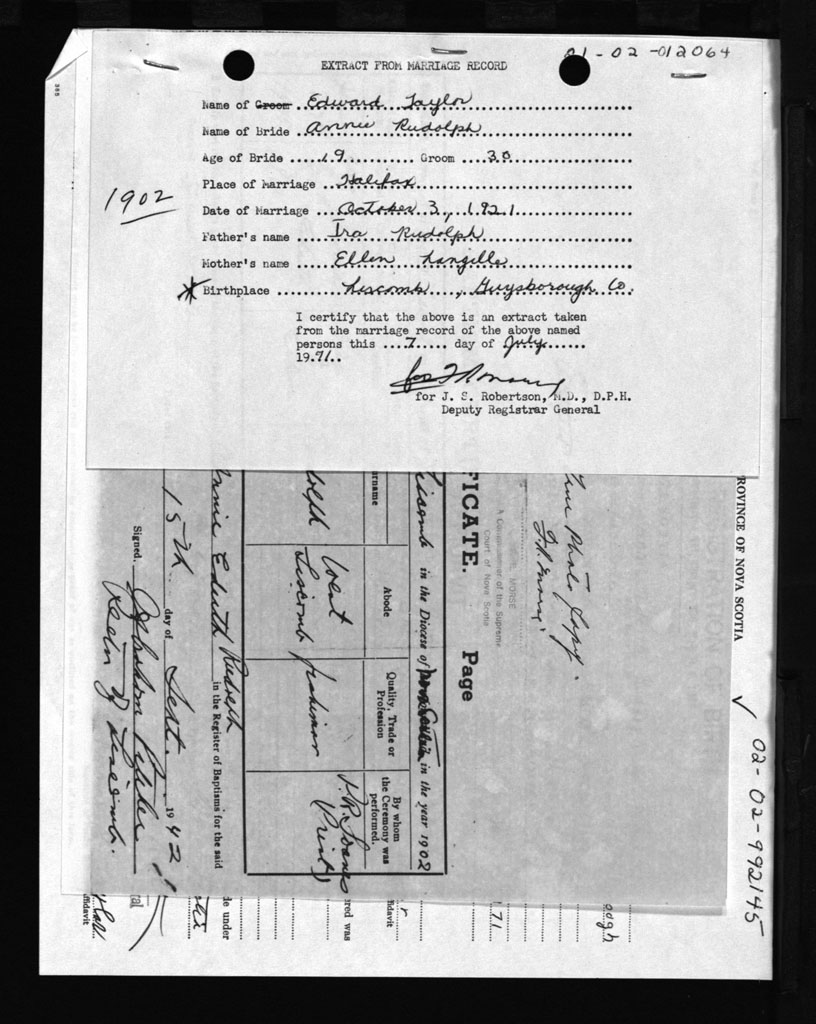 01-02-012064
EXTRACT FROM MARRIAGE RECORD
Name of Groom Edward Taylor
Name of Bride Annie Rudolph
Age of Bride 19 Groom 30
Place of Marriage Halifax
1902
Date of Marriage October 3, 1921
Father's name Ira Rudolph
Mother's name Ellen Langille
Birthplace Liscomb, Guysborough Co.
I certify that the above is an extract taken
from the marriage record of the above named
persons this 7 day of July
1971
for J. S. Robertson, M.D., D.P.H.
Deputy Registrar General
PROVINCE OF NOVA SCOTIA
02-02-992145
True Photo Copy.
MORSE
A Commissioner of the Supreme
Court of Nova Scotia
FICATE. Page
Liscomb in the Diocese of Nova Scotia in the year 1902
urname
Abode
Quality, Trade or
Profession
By whom
the Ceremony was
performed.
olph
West
Liscomb
fisherman
(Priest)
Annie Edith Rudolph
in the Register of Baptisms for the said
15th day of Sept. 1942
Signed,
Rector of Liscomb.
ough
71
r
fidavit
red was
de under
ral
ffidavit